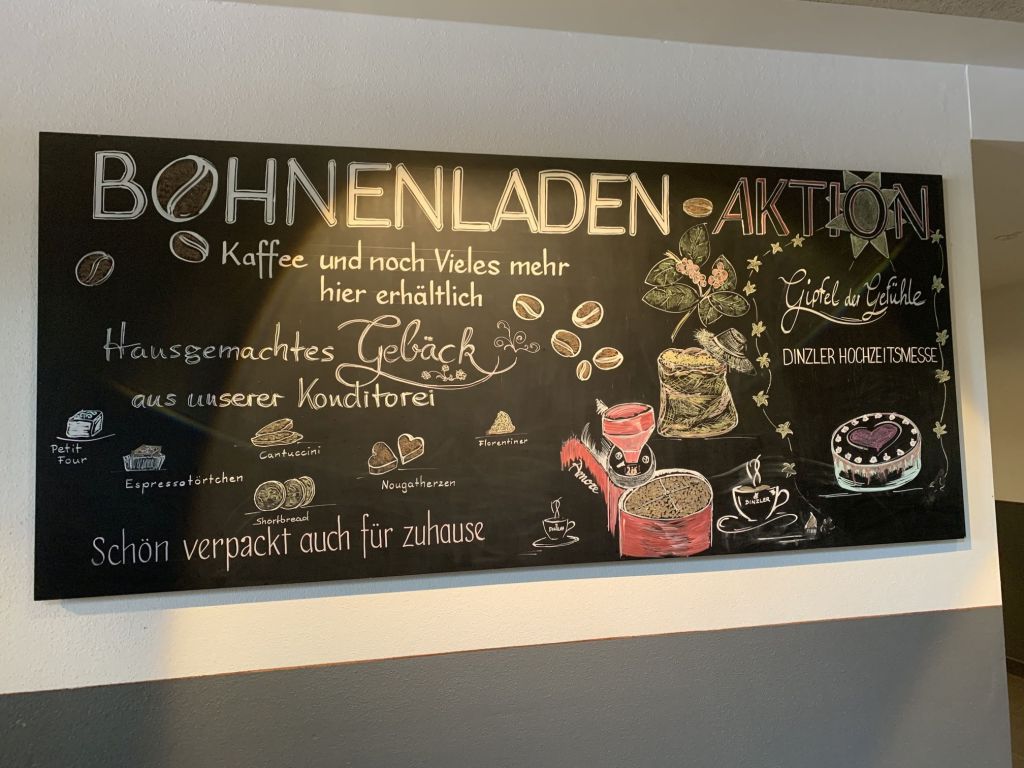 BOHNENLADEN AKTION
Kaffee und noch Vieles mehr
hier erhältlich
Hausgemachtes Gebäck
aus unserer Konditorei
Petit
Four
Espressotörtchen
Cantuccini
Shortbread
Nougatherzen
Florentiner
Schön verpackt auch für zuhause
Amore
DINZLER
DINZLER
Gipfel der Gefühle
DINZLER HOCHZEITSMESSE